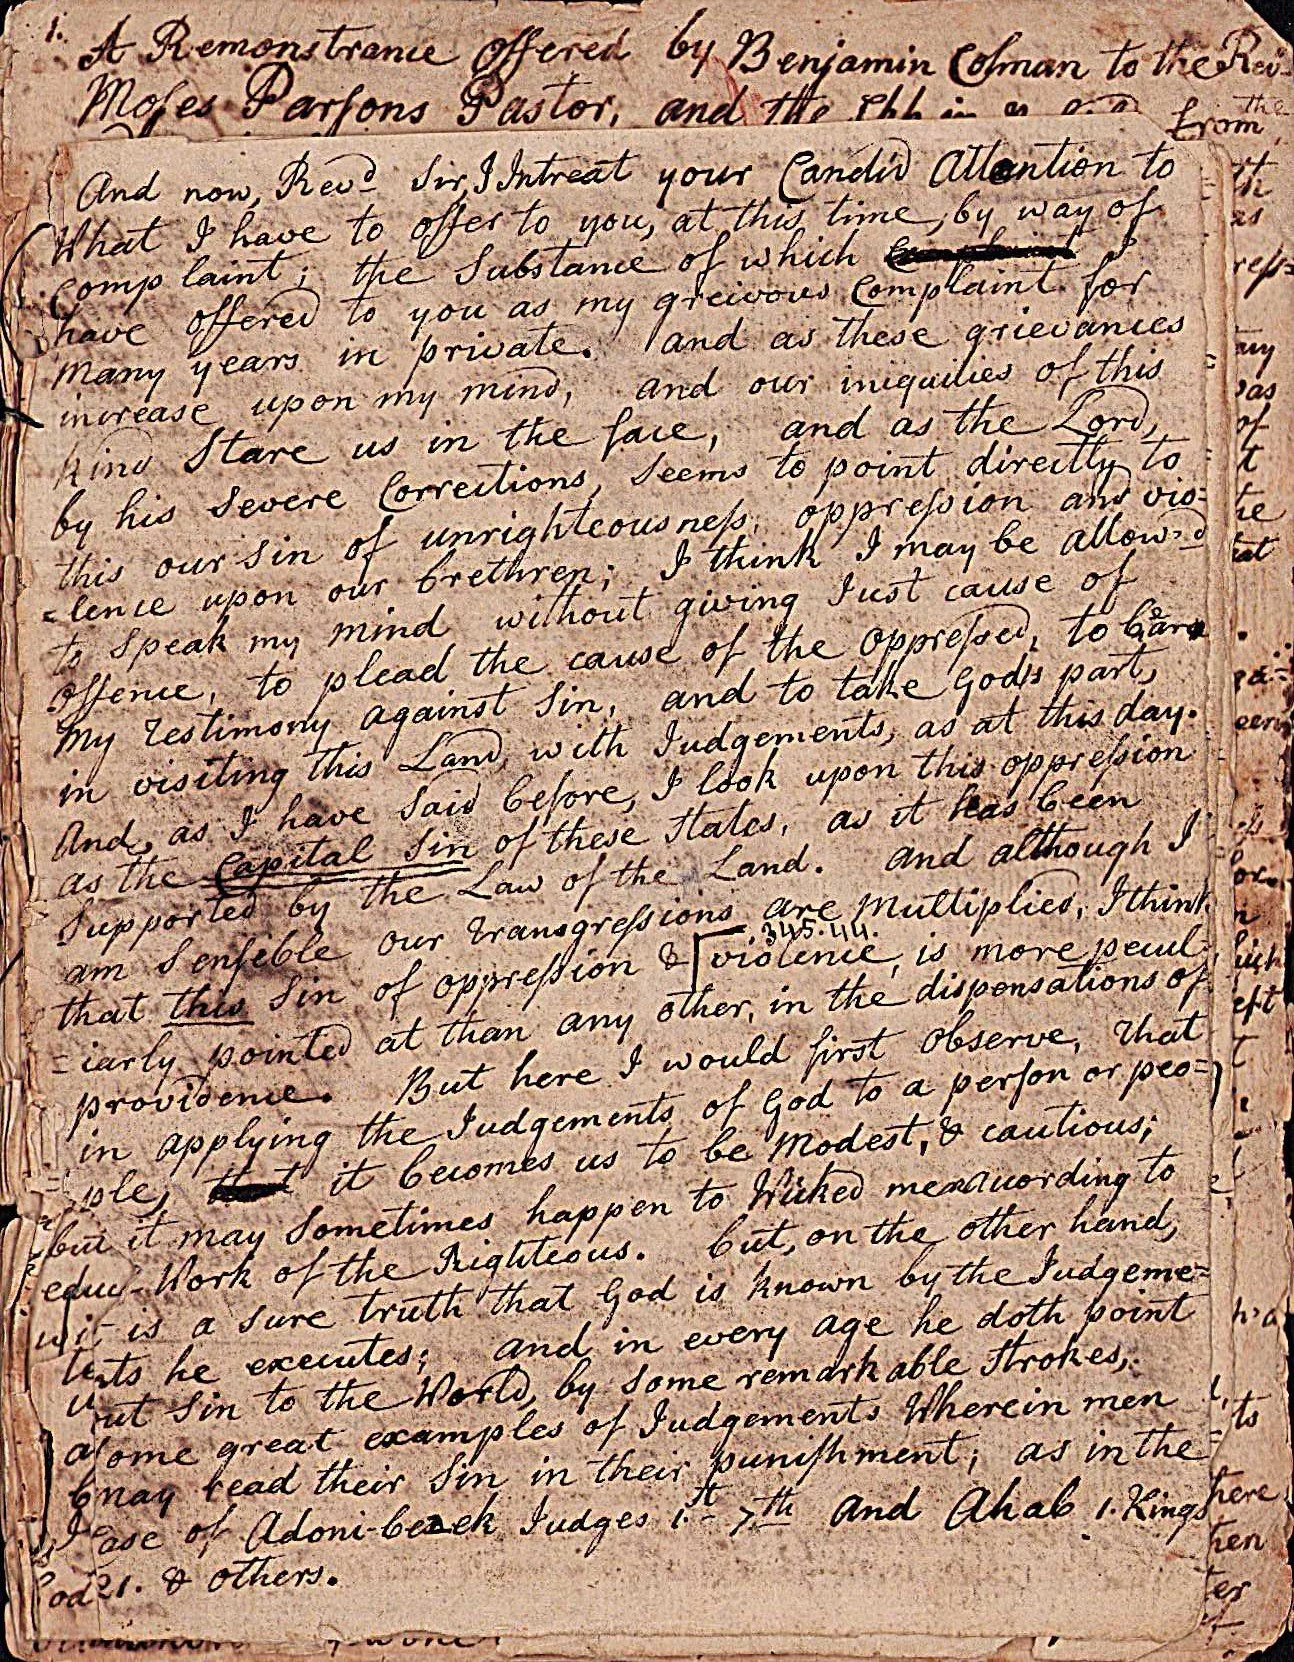 1.
A Remonstrance offered by Benjamin Colman to the Revd
Moses Parsons Pastor, and the
from the
And now, Revd Sir, I Intreat your Candid Attention to
What I have to offer to you, at this time, by way of
Complaint; the Substance of which I
have offered to you as my greivous Complaint for
many years in private. and as these grievances
increase upon my mind, and our iniquities of this
kind Stare us in the face, and as the Lord,
by his Severe Corrections, seems to point directly to
this our Sin of unrighteousness, oppression and vio=
=lence upon our brethren; I think I may be allow'd
to speak my mind without giving Just cause of
offence, to plead the cause of the oppressed, to bear
my Testimony against Sin, and to take God's part,
in visiting this Land, with Judgements, as at this day.
And, as I have Said before, I look upon this oppression
as the Capital Sin of these States, as it has been
Supported by the Law of the Land. And although I
am Sensible our transgressions are Multiplied, I think
345.44.
that this Sin of oppression & violence, is more pecul=
=iarly pointed at than any other, in the dispensations of
providence. But here I would first Observe, that
in applying the Judgements of God to a person or peo=
ple, it becomes us to be Modest, & cautious;
but it may Sometimes happen to Wicked men according to
Work of the Righteous. but, on the other hand,
it is a sure truth that God is known by the Judgeme=
nts he executes; and in every age he doth point
out Sin to the World, by Some remarkable Strokes,
Some great examples of Judgements Wherein men
may read their Sin in their punishment; as in the
Case of Adoni-bezek Judges 1.st 7th and Ahab 1. Kings
21. & others.